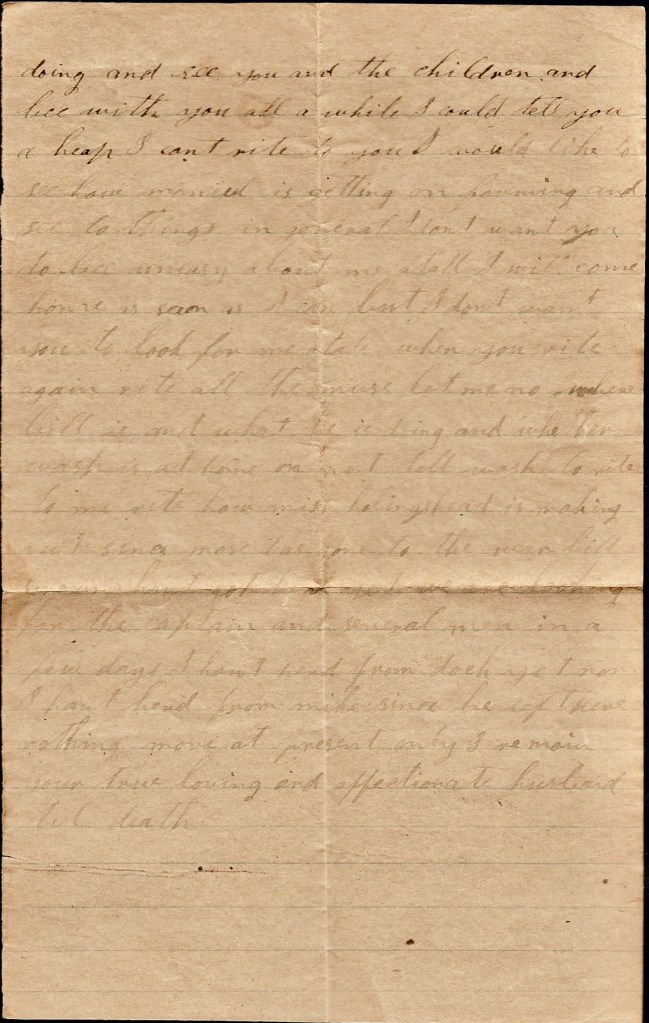 doing and see you and the children and
bee with you all a while I could tell you
a heap I cant rite to you I would like to
see how is getting on farming and
see to things in general I dont want you
to bee uneasy about me atall I will come
home is soon as I can but I dont want
you to look for me atall when you rite
again rite all the nuse let me no where
bill is and what he is doing and whether
wash is at home or not tell wash to rite
to me rite how miss is making
out since mose has gone to the war bill
hant got here yet we are looking
for the captain and several men in a
few days I hant herd from yet nor
I hant herd from mike since he left here
nothing more at present only I remain
your true loving and affectionate husband
til death